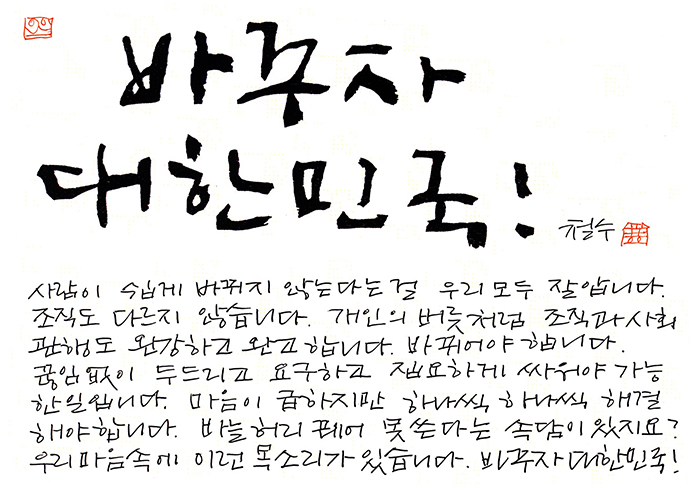 바꾸자
대한민국!
철수
사람이 쉽게 바뀌지 않는다는 걸 우리 모두 잘 압니다.
조직도 다르지 않습니다. 개인의 버릇처럼 조직과 사회
관행도 완강하고 완고합니다. 바뀌어야 합니다.
끊임없이 두드리고 요구하고 집요하게 싸워야 가능
한 일입니다. 마음이 급하지만 하나씩 하나씩 해결
해야 합니다. 바늘허리 꿰어 못 쓴다는 속담이 있지요?
우리 마음속에 이런 목소리가 있습니다. 바꾸자 대한민국!